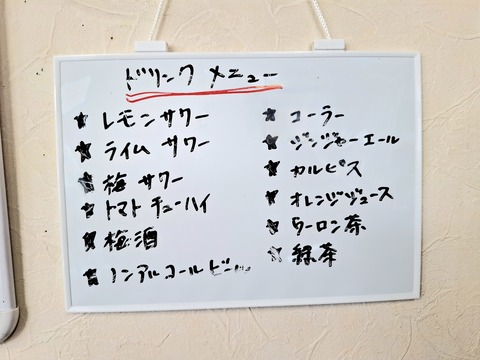 ドリンク メニュー
★ レモンサワー
★ ライム サワー
★ 梅 サワー
★ トマト チューハイ
★ 梅酒
★ ノンアルコールビール
★ コーラー
★ ジンジャーエール
★ カルピス
★ オレンジジュース
★ ウーロン茶
★ 緑茶